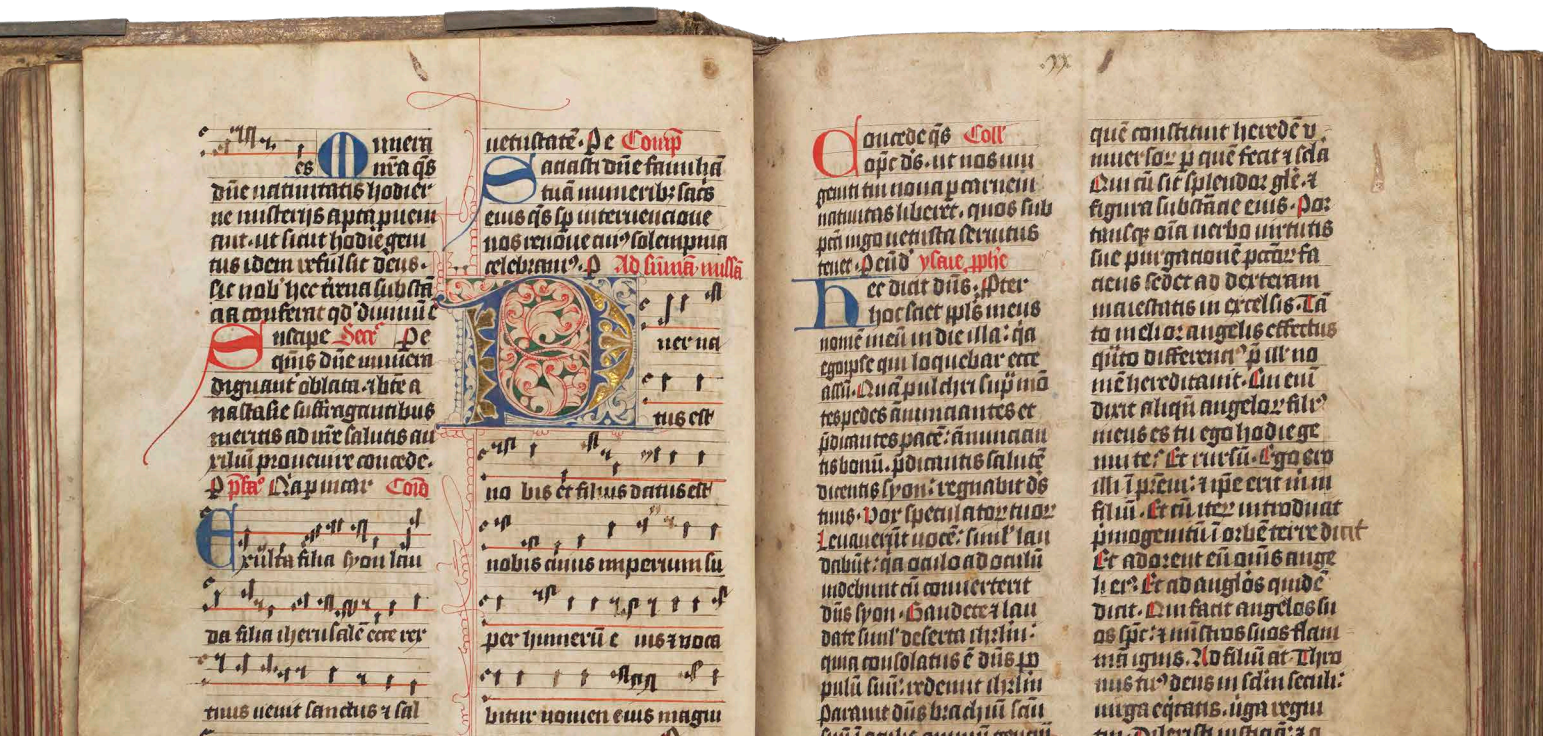 Munera
es nr̄a q̄s
dn̄e natiuitatis hodier
ne misterijs apta pueni
ant · ut sicut hodie geni
tus idem refulsit deus ·
sic nob' hec terrena substā
cia conferat qd' diuinū ē
Suscipe Secr̄ Pe
quūs dn̄e munera
dignant' oblata · ⁊ bt̄e a
nastasie suffragantibus
meritis ad nr̄e salutis au
xiliū prouenire concede ·
P pfa° Quia p incar Com̄
Exulta filia syon lau
da filia iherusalē ecce rex
tuus uenit sanctus ⁊ sal
uetustatē · Pe Comp̄
Saciasti dn̄e familiā
tuā munerib; sac̄s
eius q̄s sp̄ interuencione
nos refoue cui⁹ solempnia
celebram⁹ · P Ad summā missā
Puer na
tus est
no bis et filius datus est
nobis cuius imperium su
per humerū e ius ⁊ uoca
bitur nomen eius magni
.xx.
Concede q̄s Coll'
opc̄ ds̄ · ut nos uni
geniti tui noua p carnem
natiuitas liberet · quos sub
pcī iugo uetusta seruitus
tenet · P eūd' ysaie pph̄e
Hec dicit dn̄s · Pter
hoc sciet ppl̄s meus
nomē meū in die illa : q̄a
egoipse qui loquebar ecce
assū · Quā pulchri suꝑ mō
tes pedes ānunciantes et
p̄dicantes pacē : ānuncian
tis bonū · p̄dicantis salutē
dicentis syon : regnabit ds̄
tuus · Vox speculatoꝝ tuoꝝ
Leuauerūt uocē : simul' lau
dabūt : q̄a oculo ad oculū
uidebunt cū conuerterit
dn̄s syon · Gaudete ⁊ lau
date siml' deserta ihrlm̄ :
quia consolatus ē dn̄s po
pulū suū : redemit ihrlm̄
Parauit dn̄s brachiū scm̄
quē constituit heredē v
niuersoꝝ p quē fecit ⁊ scl̄a
Qui cū sit splendor gl̄e · ⁊
figura substācie eius · Por
tansq; oīa uerbo uirtutis
sue purgacionē pctōꝝ fa
ciens sedet ad dexteram
maiestatis in excelsis · Tā
to melior angelis effectus
q̄nto differenci⁹ p̄ ill' no
mē hereditauit · Cui eni
dixit aliqn̄ angeloꝝ fili⁹
meus es tu ego hodie ge
nui te ? Et rursū · Ego ero
illi ī prēm : ⁊ ip̄e erit m in
filiū · Et cū iter introducit
p̄mogenitū ī orbē terre dicit
Et adorent eū om̄s ange
li ei⁹ : Et ad anglōs quidē
dicit · Qui facit angelos su
os sp̄c : ⁊ mīstros suos flam
mā ignis · Ad filiū aūt · Thro
nus tu⁹ deus in scl̄m seculi :
uirga eq̄tatis · uirga regni